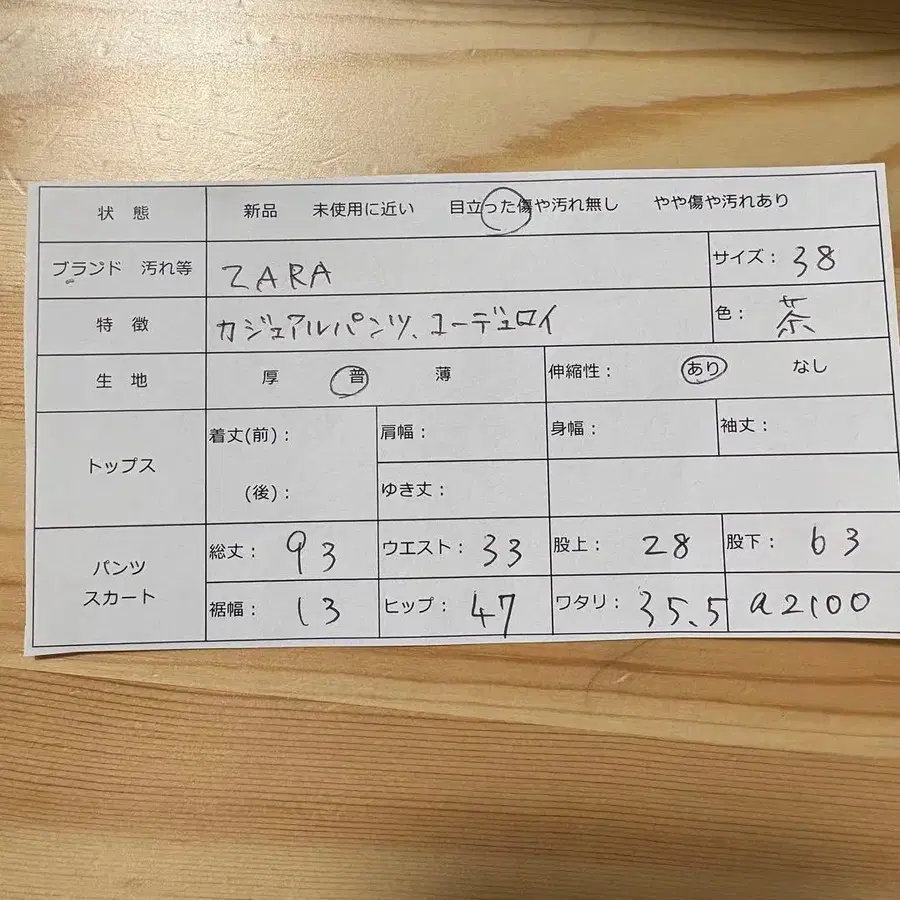 状 態 新品 未使用に近い 目立った傷や汚れ無し やや傷や汚れあり
ブランド 汚れ等 ZARA サイズ: 38
特 徴 カジュアルパンツ、コーデュロイ 色: 茶
生 地 厚 普 薄 伸縮性: あり なし
トップス 着丈(前): 肩幅: 身幅: 袖丈:
(後): ゆき丈:
パンツ スカート 総丈: 93 ウエスト: 33 股上: 28 股下: 63
裾幅: 13 ヒップ: 47 ワタリ: 35.5 a2100